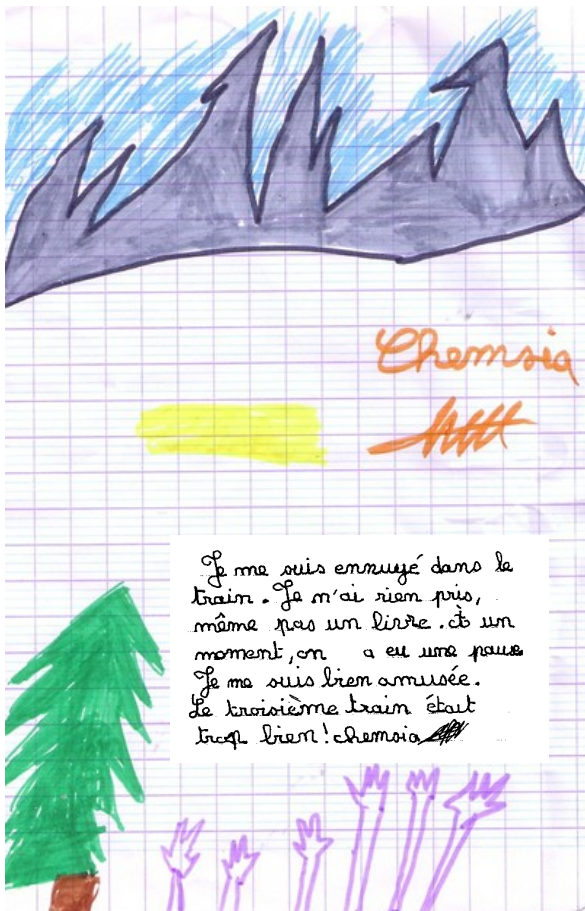 Chemsia
Je me suis ennuyé dans le
train. Je n'ai rien pris,
même pas un livre. à un
moment, on a eu une pause
Je me suis bien amusée.
Le troisième train était
trop bien! chemsia